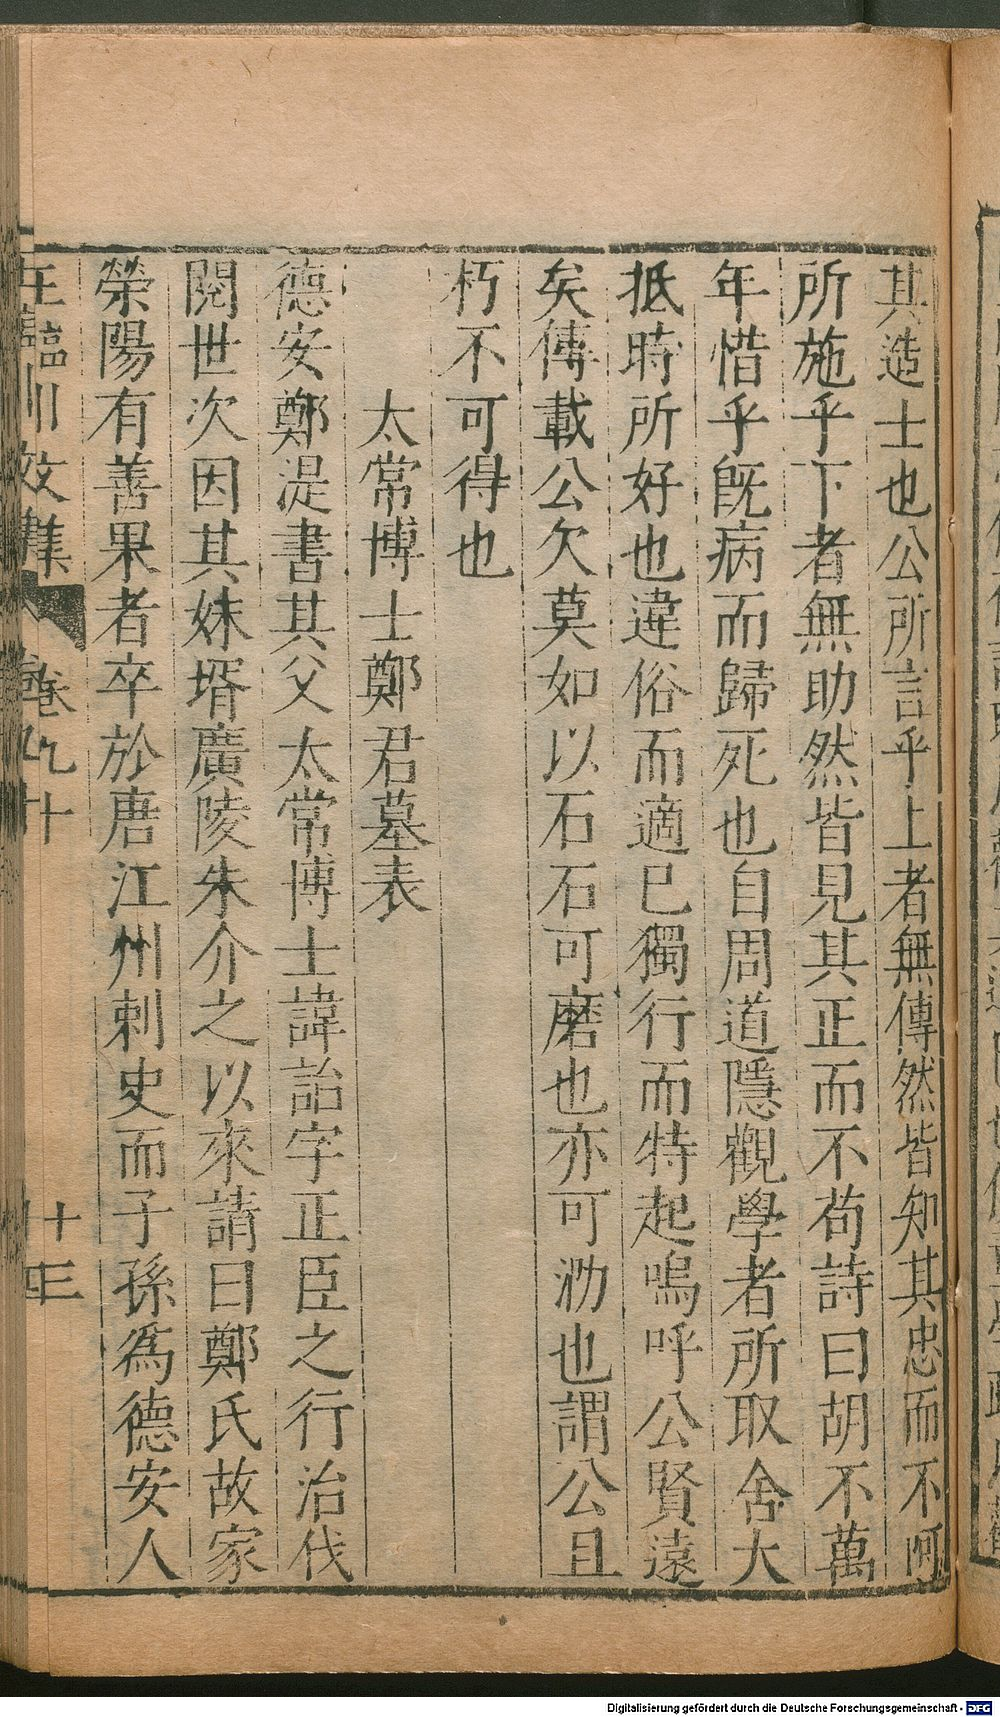 其造士也公所言乎上者無傳然皆知其忠而不阿
所施乎下者無助然皆見其正而不苟詩曰胡不萬
年惜乎旣病而歸死也自周道隱觀學者所取舍大
抵時所好也違俗而適已獨行而特起嗚呼公賢遠
矣傳載公欠莫如以石石可磨也亦可泐也謂公且
朽不可得也
太常博士鄭君墓表
德安鄭湜書其父太常博士諱詒字正臣之行治伐
閱世次因其妹壻廣陵朱介之以來請曰鄭氏故家
滎陽有善果者卒於唐江州刺史而子孫爲德安人
王臨川文集 卷九十 十四
Digitalisierung gefördert durch die Deutsche Forschungsgemeinschaft - DFG